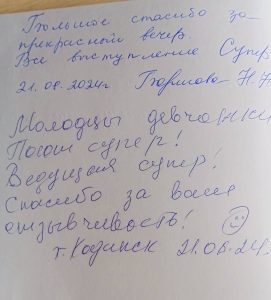 Большое спасибо за
прекрасный вечер.
Все выступление Супер
21.08.2024г Н.Н
Молодцы девчонки
Поют супер!
Ведущая супер!
Спасибо за ваше
отзывчивость!
г. Кодинск 21.08.24.